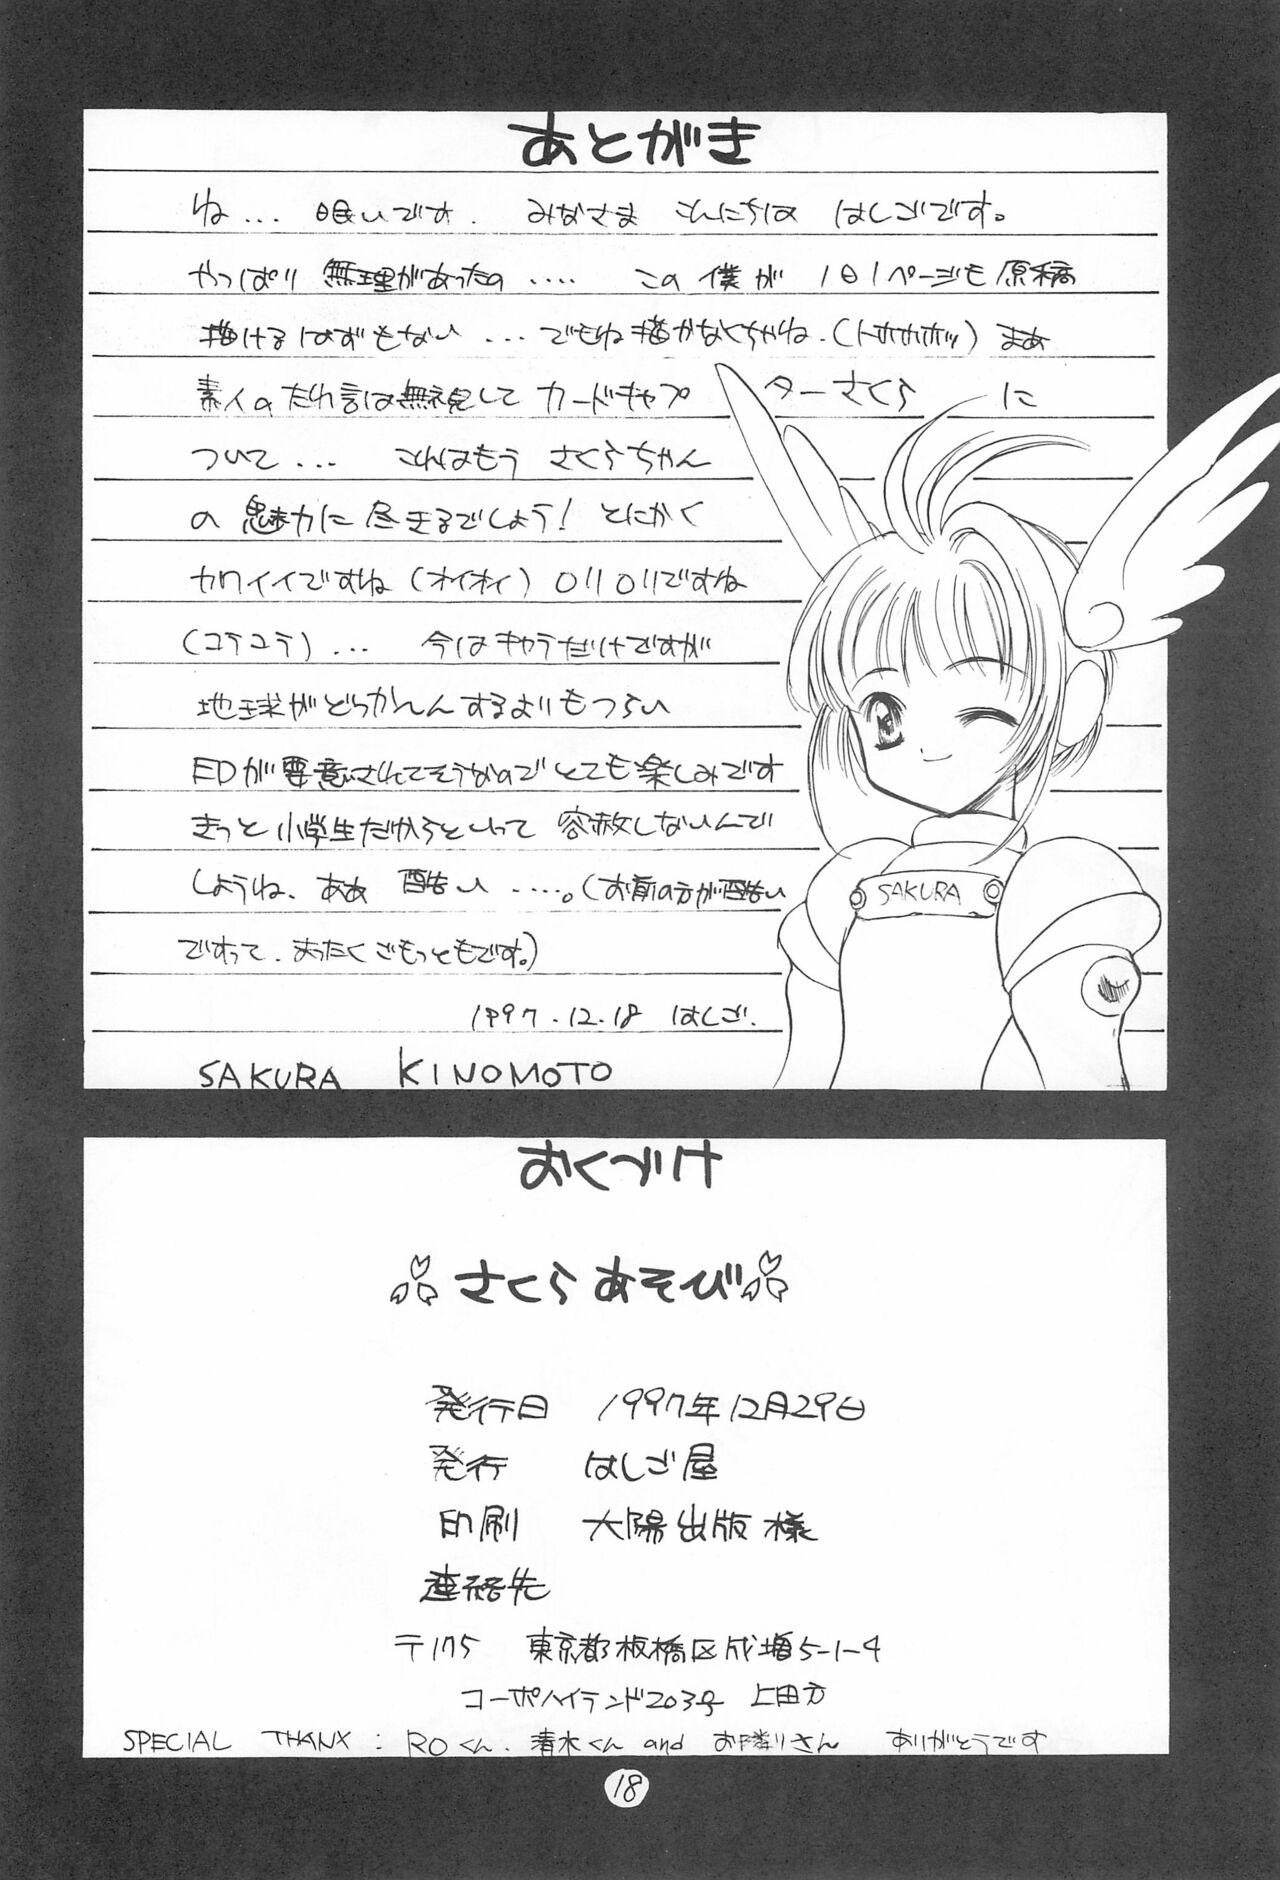 あとがき
ね... 眠いです. みなさま こんにちは はしごです。
やっぱり 無理があったの .... この僕が 1日1ページも原稿
描けるはずもない ... でもね描かなくちゃね.(トホホホホッ) まあ
素人のたわ言は無視して カードキャプターさくら に
ついて... これはもう さくらちゃん
の魅力に尽きるでしょう! とにかく
カワイイですね (オイオイ) ですね
(コラコラ)... 今はキャラだけですが
地球がどっかんするよりもつらい
EDが要意されてそうなのでとても楽しみです
きっと小学生だからといって 容赦しないんで
しょうね、ああ 酷い .....。(お前の方が酷い
ですって、まったくごもっともです。)
1997.12.18 はしご.
SAKURA KINOMOTO
SAKURA
おくづけ
さくらあそび
発行日 1997年12月29日
発行 はしご屋
印刷 大陽出版様
連絡先
〒175 東京都板橋区成増5-1-4
コーポハイランド203号 上田方
SPECIAL THANX : ROくん. 清水くん and お隣りさん ありがとうです
18